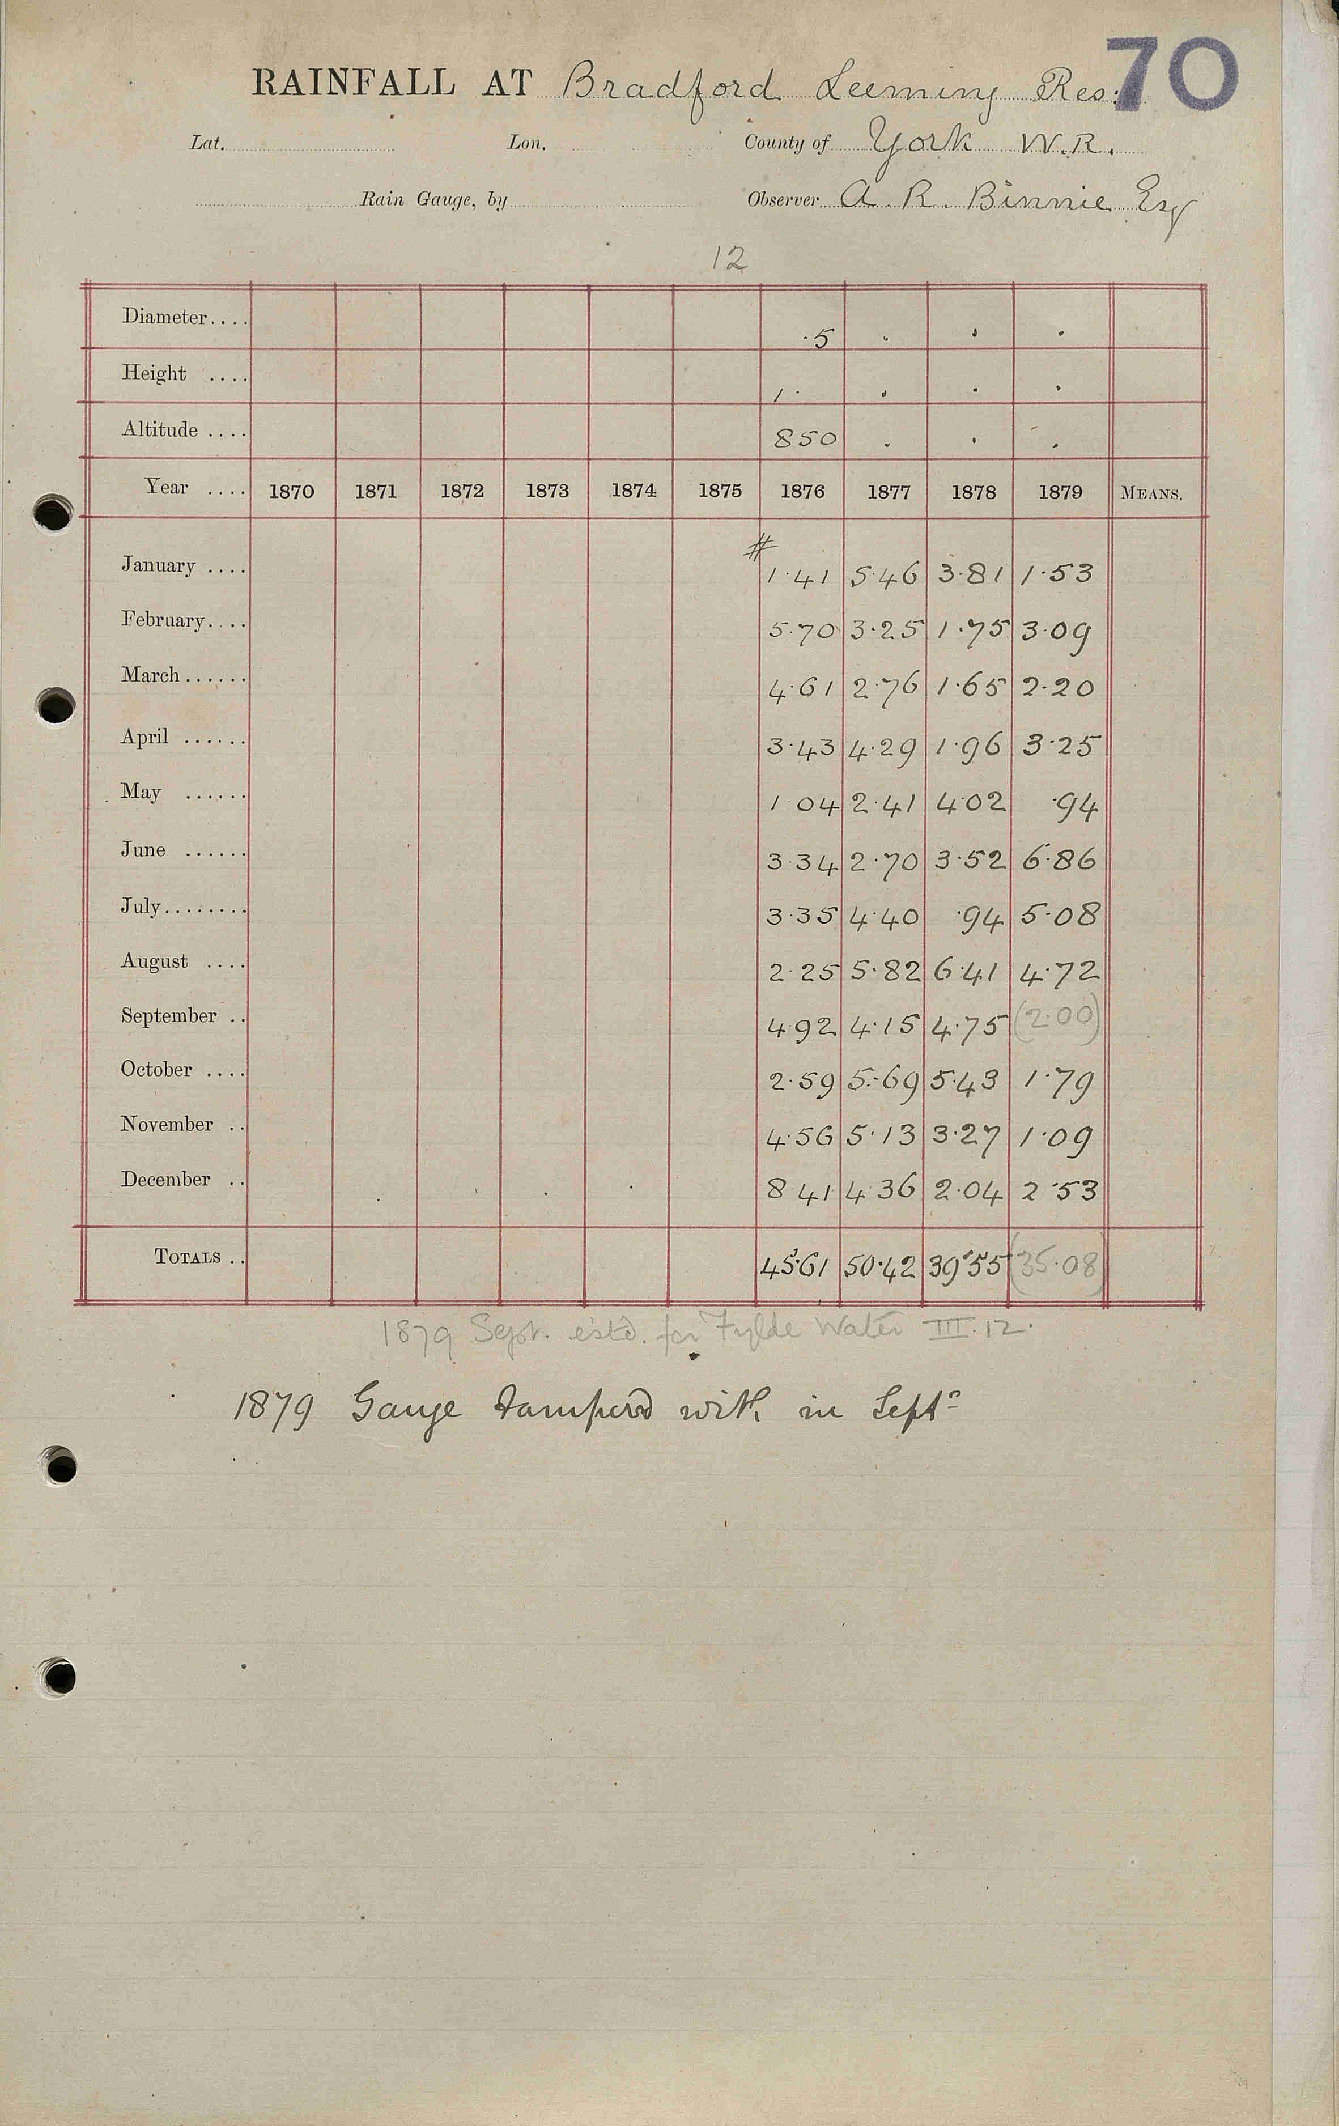 70
RAINFALL AT Bradford Leeming Res:
Lat. Lon. County of York W.R.
Rain Gauge, by Observer A. R. Binnie Esq
12
Diameter.... ·5 · · ·
Height .... 1· · · ·
Altitude .... 850 · · ·
Year .... 1870 1871 1872 1873 1874 1875 1876 1877 1878 1879 MEANS.
#
January .... 1·41 5·46 3·81 1·53
February.... 5·70 3·25 1·75 3·09
March...... 4·61 2·76 1·65 2·20
April ...... 3·43 4·29 1·96 3·25
May ...... 1 04 2·41 4·02 ·94
June ...... 3·34 2·70 3·52 6·86
July........ 3·35 4·40 ·94 5·08
August .... 2·25 5·82 6·41 4·72
September .. 4·92 4·15 4·75 (2·00)
October .... 2·59 5·69 5·43 1·79
November .. 4·56 5·13 3·27 1·09
December .. 8 41 4·36 2·04 2·53
TOTALS .. 45·61 50·42 39·55 (35·08)
1879 Sept. estd. for Fylde Water III.12.
1879 Gauge tampered with in Sept?